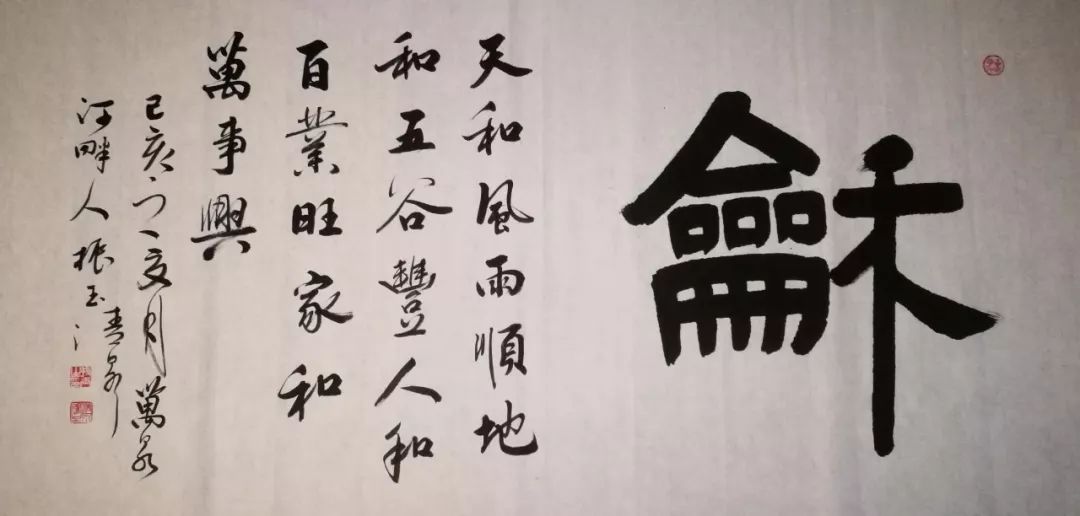 龢
天和風雨順地
和五谷豐人和
百業旺家和
萬事興
己亥之夏月萬泉
河畔人振玉清泉